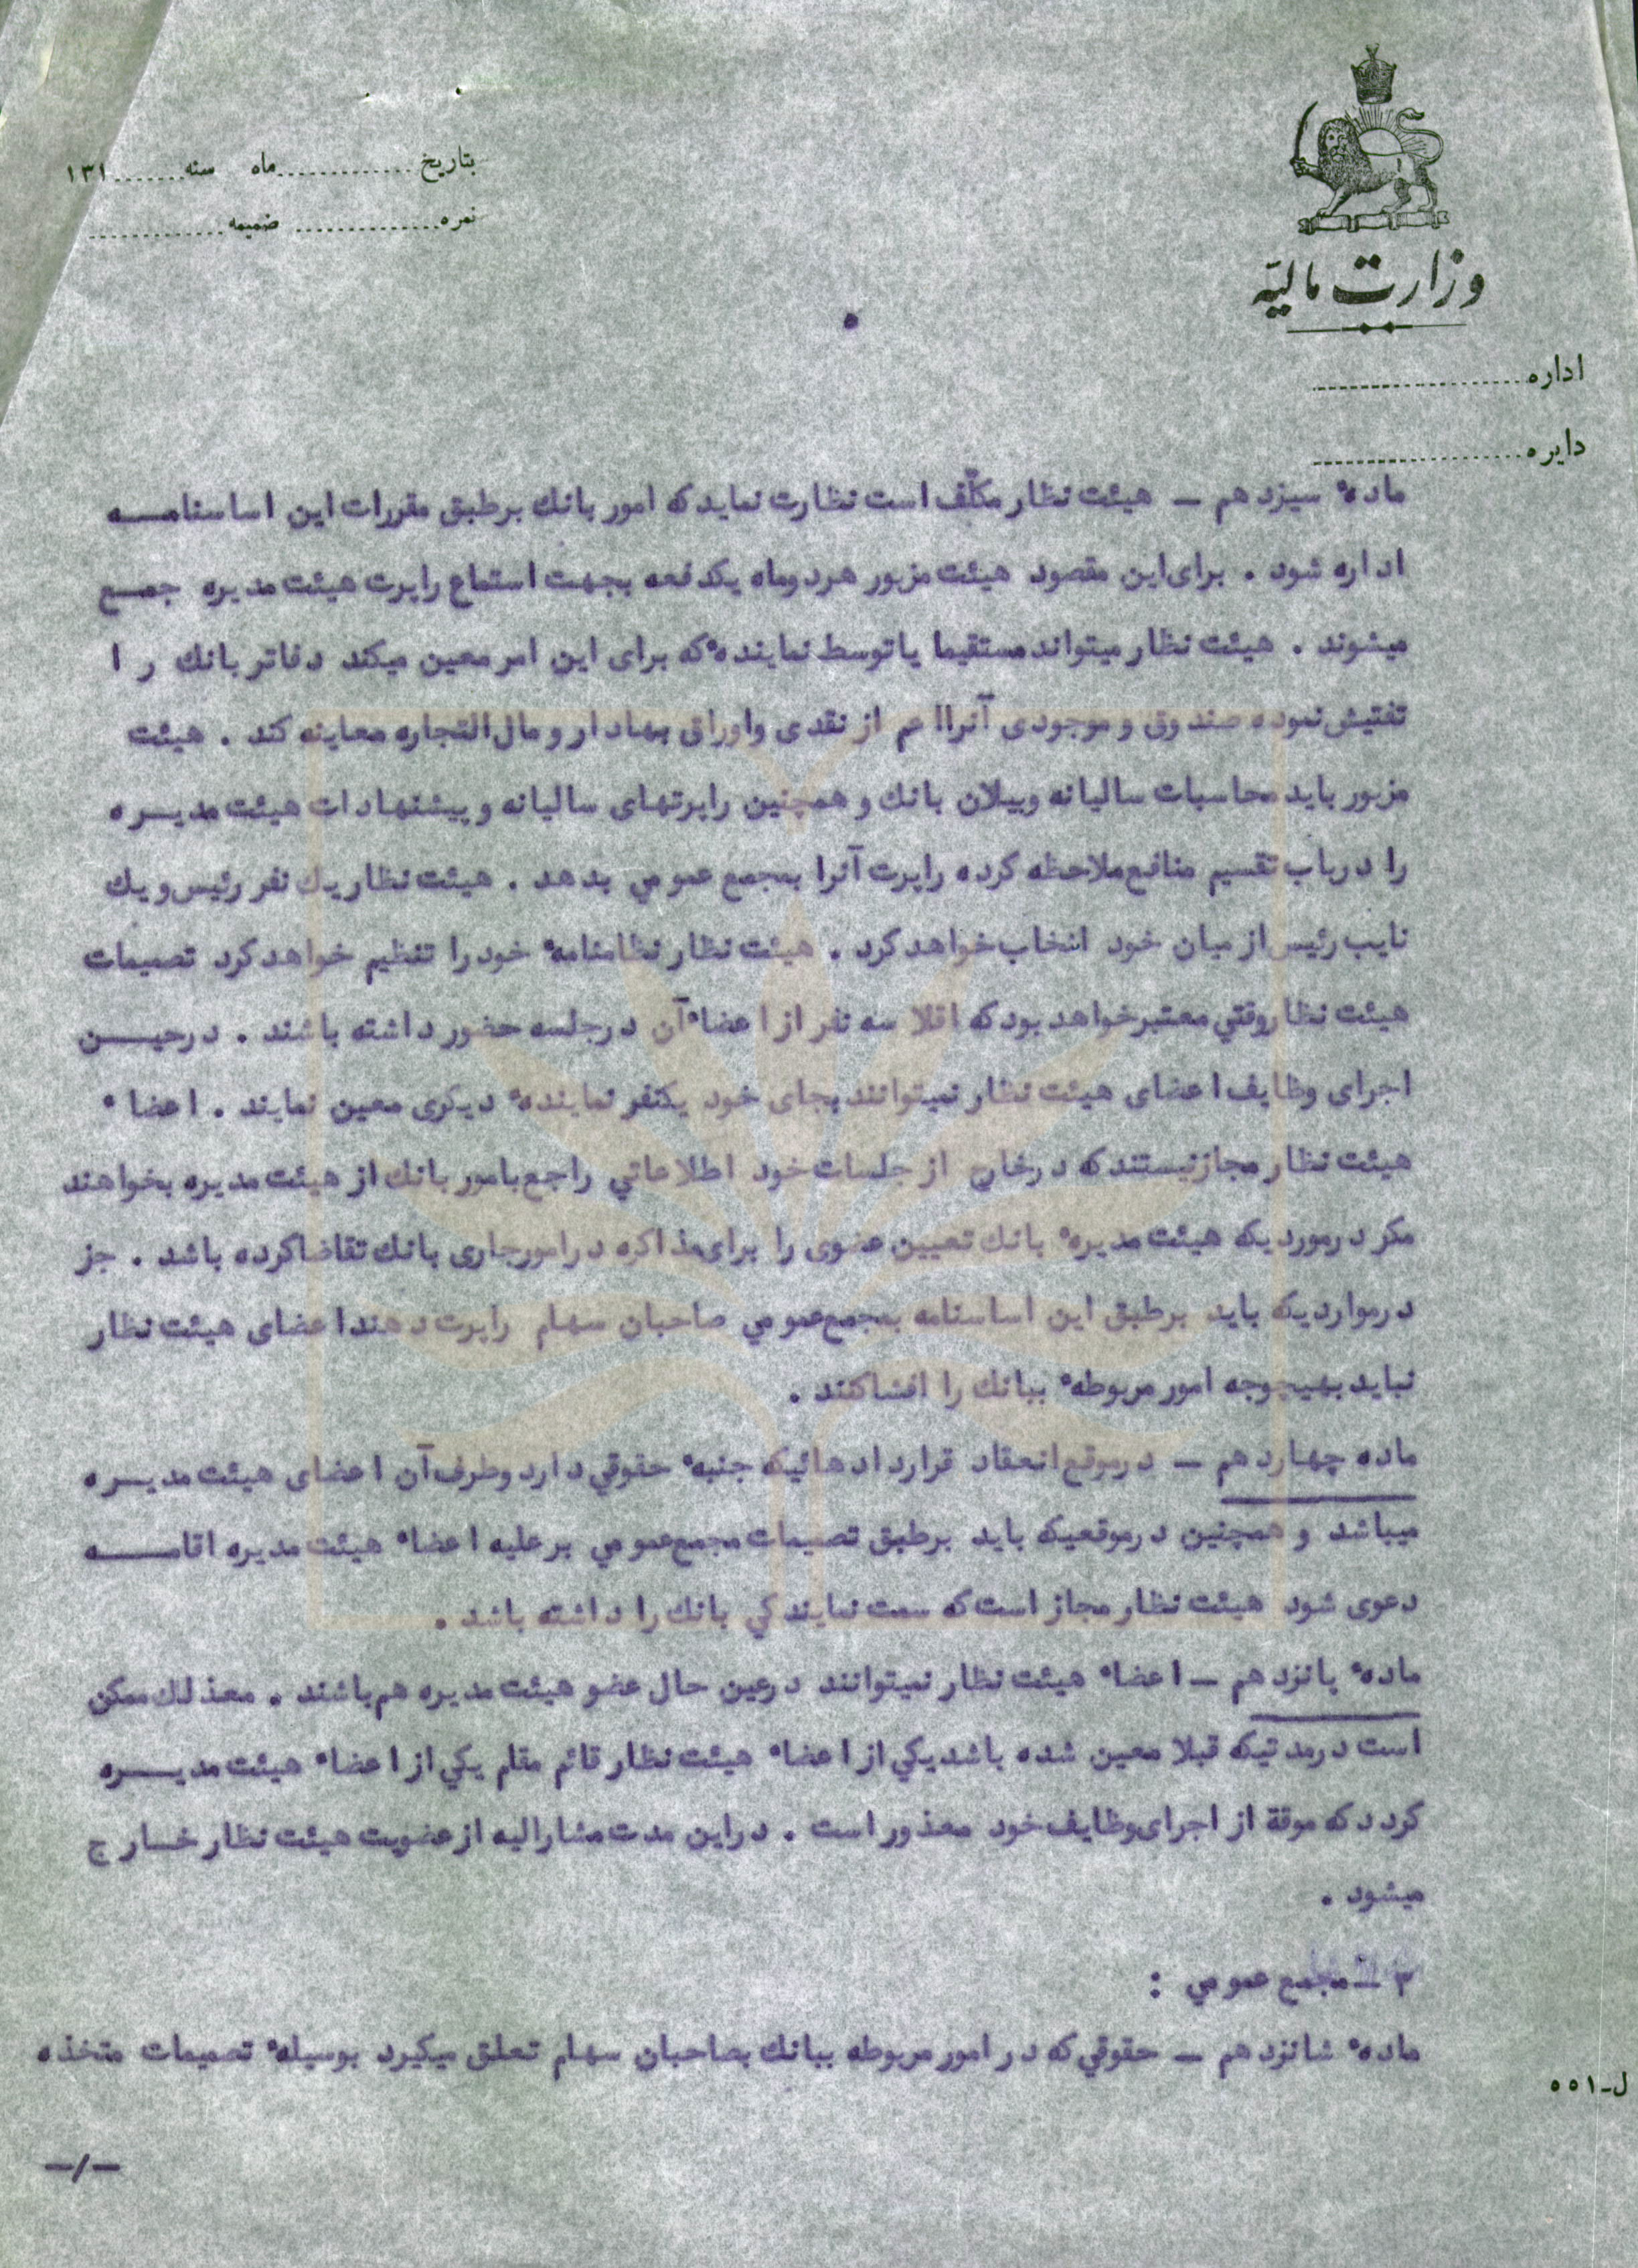 وزارت مالیّه
بتاریخ ............ ماه سنه ....... ۱۳۱
نمره .............. ضمیمه .............
اداره ....................
دایره ....................
۵
مادهٔ سیزدهم ـ هیئت نظار مکلّف است نظارت نماید که امور بانك برطبق مقررات این اساسنامـــه
اداره شود . برای این مقصود هیئت مزبور هردوماه یکدفعه بجهت استماع راپرت هیئت مدیره جمـــع
میشوند . هیئت نظار میتواند مستقیما یا توسط نمایندهٔ که برای این امر معین میکند دفاتر بانك را
تفتیش نموده صندوق و موجودی آنرا اعم از نقدی واوراق بهادار و مال التجاره معاینه کند . هیئت
مزبور باید محاسبات سالیانه وبیلان بانك و همچنین راپرتهای سالیانه و پیشنهادات هیئت مدیـــره
را درباب تقسیم منافع ملاحظه کرده راپرت آنرا بمجمع عمومي بدهد . هیئت نظار یك نفر رئیس و یك
نایب رئیس از میان خود انتخاب خواهد کرد . هیئت نظار نظامنامهٔ خود را تنظیم خواهد کرد تصمیمات
هیئت نظار وقتي معتبر خواهد بود که اقلا سه نفر از اعضاء آن درجلسه حضور داشته باشند . درحیـــن
اجرای وظایف اعضای هیئت نظار نمیتوانند بجای خود یکنفر نمایندهٔ دیکری معین نمایند . اعضاء
هیئت نظار مجاز نیستند که درخارج از جلسات خود اطلاعاتي راجع بامور بانك از هیئت مدیره بخواهند
مکر درموردیکه هیئت مدیرهٔ بانك تعیین عضوی را برای مذاکره در امورجاری بانك تقاضا کرده باشد . جز
درمواردیکه باید برطبق این اساسنامه بمجمع عمومي صاحبان سهام راپرت دهند اعضای هیئت نظار
نباید بهیچوجه امور مربوطهٔ ببانك را افشا کنند .
ماده چهاردهم ـ درموقع انعقاد قراردادهائیکه جنبهٔ حقوقي دارد وطرف آن اعضای هیئت مدیـــره
میباشد و همچنین درموقعیکه باید برطبق تصمیمات مجمع عمومي برعلیه اعضاء هیئت مدیره اقامـــه
دعوی شود هیئت نظار مجاز است که سمت نمایندکي بانك را داشته باشد .
مادهٔ پانزدهم ـ اعضاء هیئت نظار نمیتوانند درعین حال عضو هیئت مدیره هم باشند . معذلك ممکن
است درمدتیکه قبلا معین شده باشد یکي از اعضاء هیئت نظار قائم مقام یکي از اعضاء هیئت مدیـــره
کردد که موقة از اجرای وظایف خود معذور است . دراین مدت مشارالیه از عضویت هیئت نظار خـــارج
میشود .
۳ ـ مجمع عمومي :
مادهٔ شانزدهم ـ حقوقي که در امور مربوطه ببانك بصاحبان سهام تعلق میکیرد بوسیلهٔ تصمیمات متخذه
ل-۵۵۱
ـ/ـ